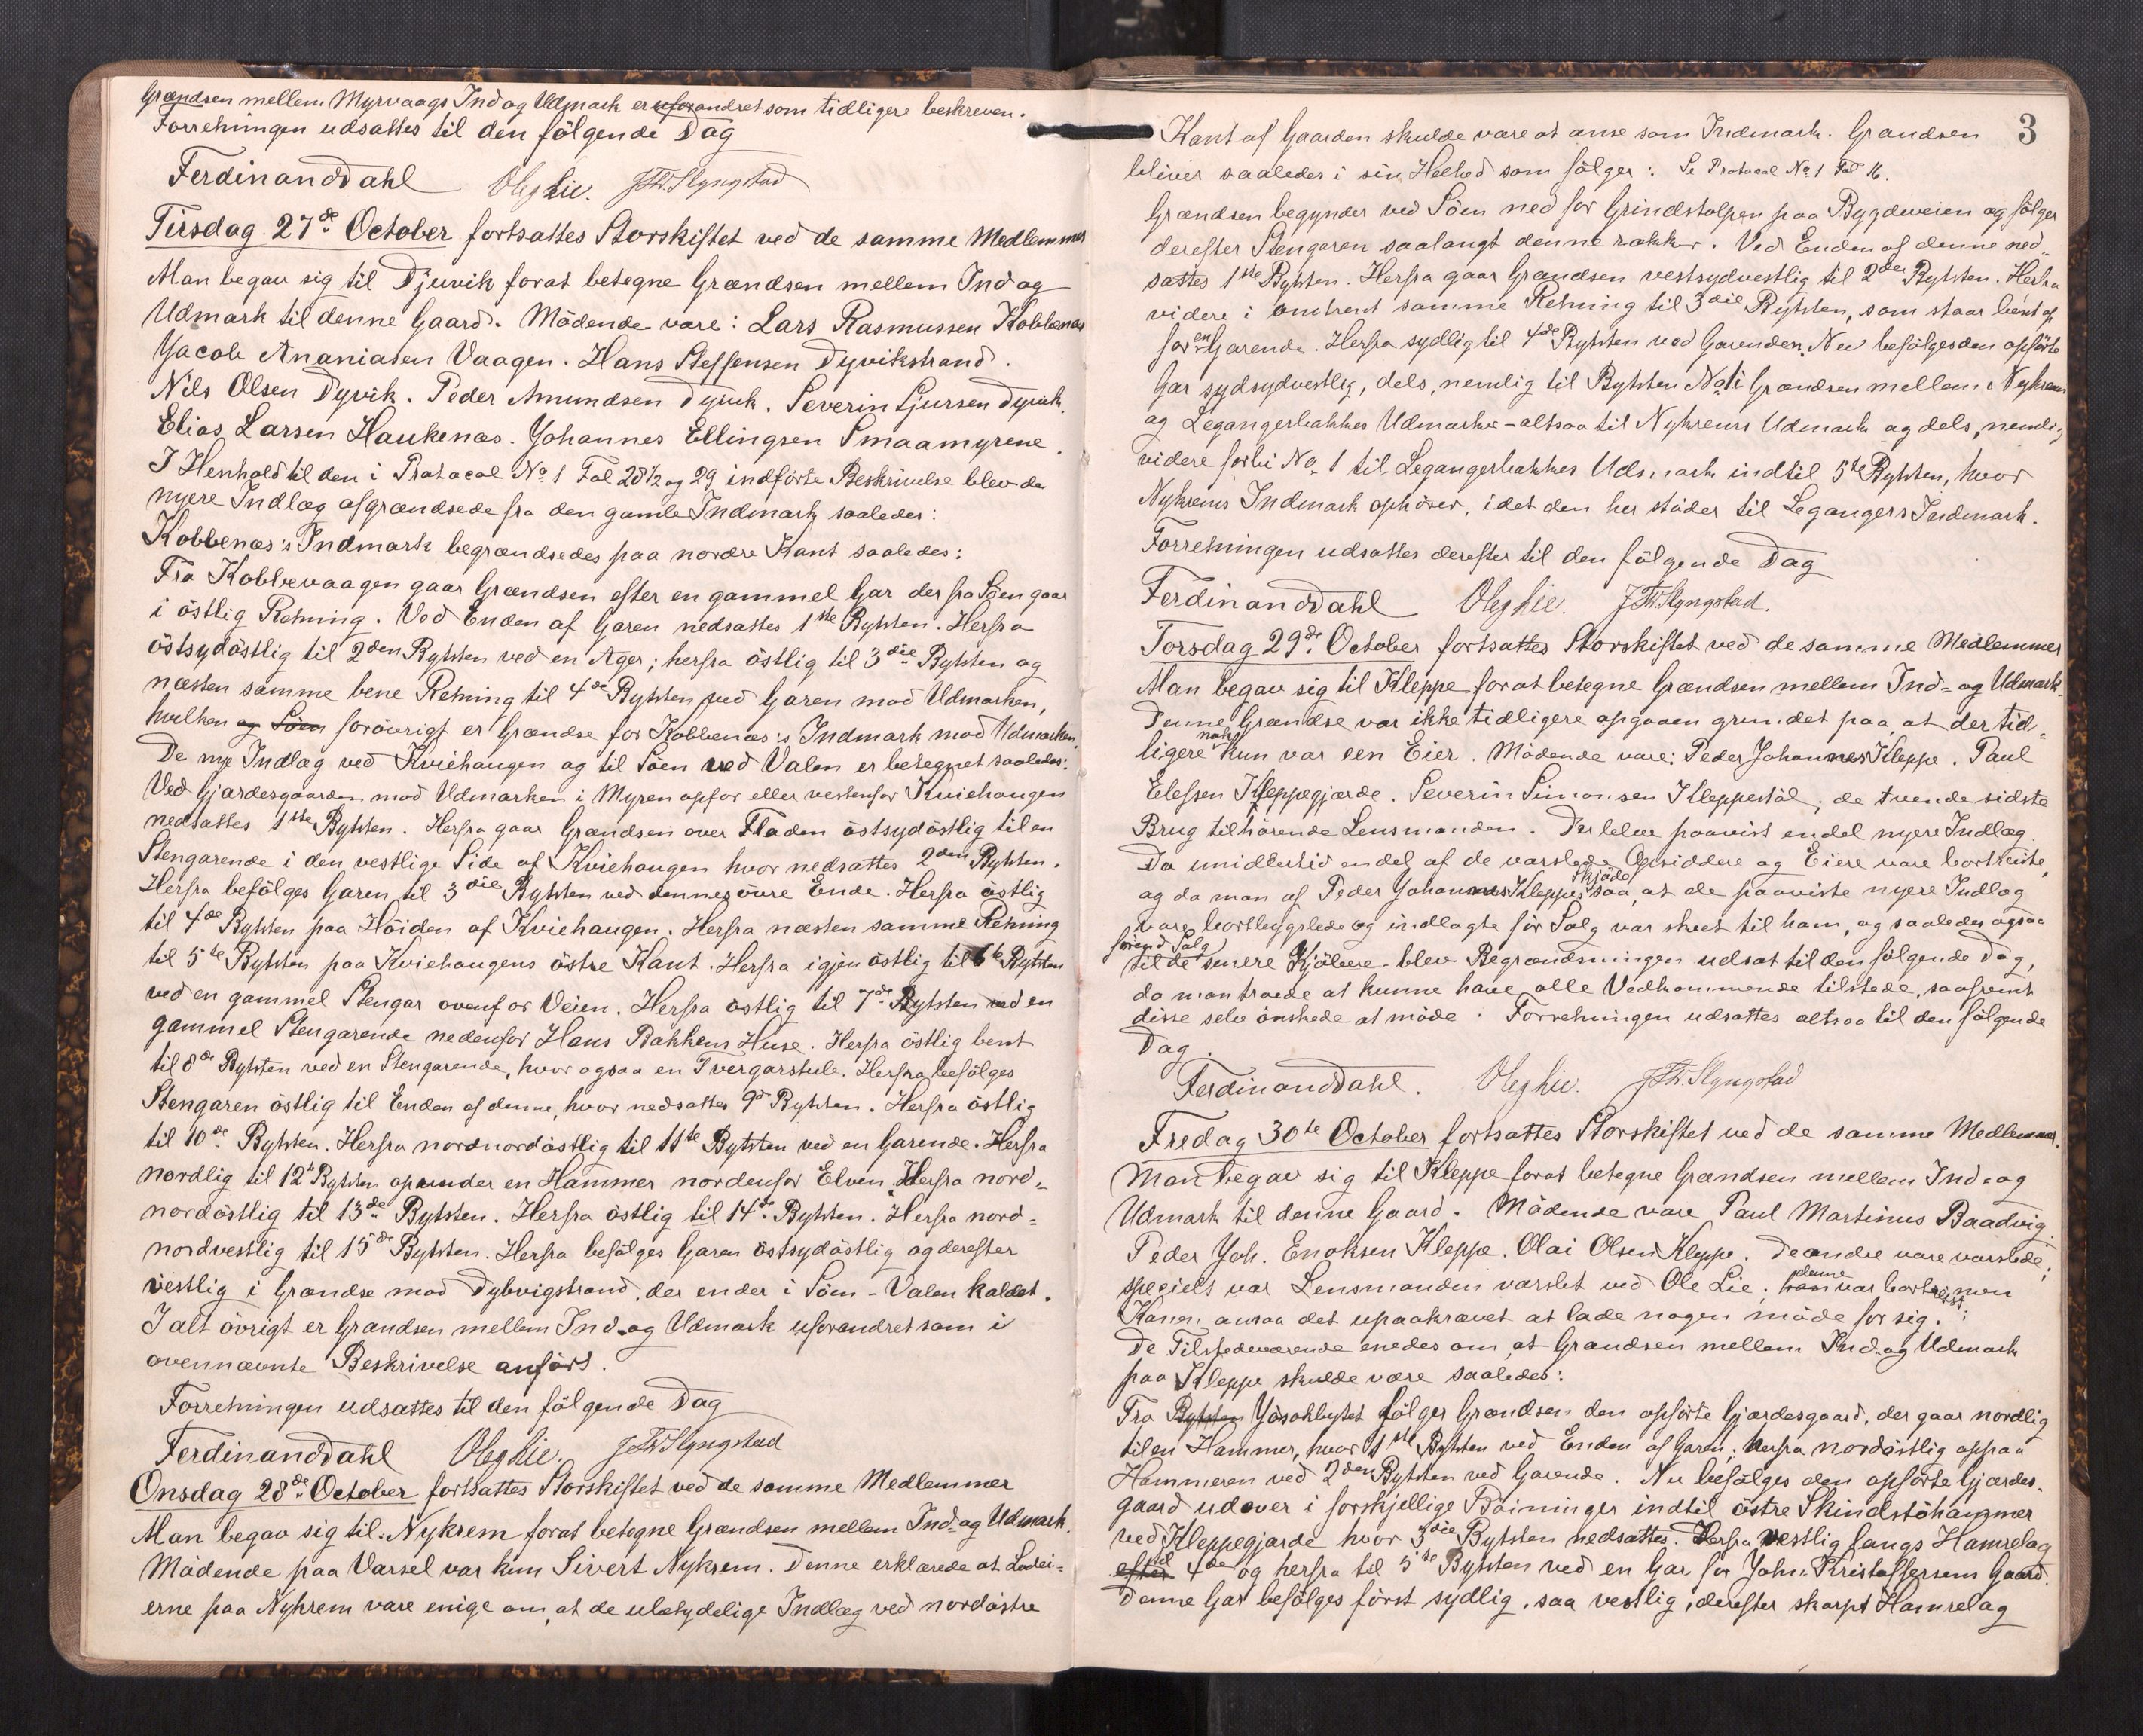 Grændsen mellem Myrvaags Ind og Udmark er uforandret som tidligere beskreven.
Forretningen udsattes til den fölgende Dag
Ferdinand Dahl Ole g Lie. J Th. Slyngstad
Tirsdag 27de October fortsattes Storskiftet ved de samme Medlemmer
Man begav sig til Djuvik forat betegne Grændsen mellem Ind og
Udmark til denne Gaard. Mödende vare: Lars Rasmussen Kobbenæs
Jacob Ananiasen Vaagen. Hans Steffensen Dyvikstrand.
Nils Olsen Dyvik. Peder Amundsen Dyvik. Severin Sjursen Dyvik.
Elias Larsen Haukenæs. Johannes Ellingsen Smaamyrene.
I Henhold til den i Protocol No 1 Fol 28 1/2 og 29 indförte Beskrivelse blev de
nyere Indlæg afgrændsede fra den gamle Indmark saaledes:
Kobbenæs's Indmark begrændsedes paa nordre Kant saaledes:
Fra Kobbevaagen gaar Grændsen efter en gammel Gar der fra Söen gaar
i östlig Retning. Ved Enden af Garen nedsattes 1ste Bytsten. Herfra
östsydöstlig til 2den Bytsten ved en Ager; herfra östlig til 3die Bytsten og
næsten samme bene Retning til 4de Bytsten ved Garen mod Udmarken,
hvilken og Söen foröivrigt er Grændse for Kobbenæs's Indmark mod Udmarken.
De nye Indlæg ved Kviehaugen og til Söen ved Valen er betegnet saaledes:
Ved Gjærdesgaarden mod Udmarken i Myren opfor eller vestenfor Kviehaugen
nedsattes 1ste Bytsten. Herfra gaar Grændsen over Fladen östsydöstlig til en
Stengarende i den vestlige Side af Kviehaugen hvor nedsattes 2den Bytsten.
Herfra befölges Garen til 3die Bytsten ved dennes övre Ende. Herfra östlig
til 4de Bytsten paa Höiden af Kviehaugen. Herfra næsten samme Retning
til 5te Bytsten paa Kviehaugens östre Kant. Herfra igjen östlig til 6te Bytsten
ved en gammel Stengar ovenfor Veien. Herfra östlig til 7de Bytsten ved en
gammel Stengarende nedenfor Hans Bakkens Huse. Herfra östlig bent
til 8de Bytsten ved en Stengarende, hvor ogsaa en Tvergarstub. Herfra befölges
Stengaren östlig til Enden af denne, hvor nedsattes 9de Bytsten. Herfra östlig
til 10de Bytsten. Herfra nordnordöstlig til 11te Bytsten ved en Garende. Herfra
nordlig til 12te Bytsten op under en Hammer nordenfor Elven. Herfra nord-
nordöstlig til 13de Bytsten. Herfra östlig til 14de Bytsten. Herfra nord-
nordvestlig til 15de Bytsten. Herfra befölges Garen östsydöstlig og derefter
vestlig i Grændse mod Dybvigstrand, der ender i Söen - Valen kaldet.
I alt övrigt er Grændsen mellem Ind og Udmark uforandret som i
ovennævnte Beskrivelse anfört.
Forretningen udsattes til den fölgende Dag
Ferdinand Dahl Ole g Lie. J Th Slyngstad
Onsdag 28de October fortsattes Storskiftet ved de samme Medlemmer
Man begav sig til Nykrem forat betegne Grændsen mellem Ind- og Udmark.
Mödende paa Varsel var kun Sivert Nykrem. Denne erklærede at Lodei-
erne paa Nykrem vare enige om, at de ubetydelige Indlæg ved nordöstre
3
Kant af Gaarden skulde være at anse som Indmark. Grændsen
bliver saaledes i sin Helhed som fölger: Se Protocol No 1 Fol 16.
Grændsen begynder ved Söen ned for Grindstolpen paa Bygdeveien og fölger
derefter Stengaren saalangt denne rækker. Ved Enden af denne ned-
sættes 1ste Bytsten. Herfra gaar Grændsen vestsydvestlig til 2den Bytsten. Herfra
videre i omtrent samme Retning til 3die Bytsten, som staar bent op
for en Garende. Herfra sydlig til 4de Bytsten ved Garenden. Nu befölges den opförte
Gar sydsydvestlig, dels, nemlig til Bytsten No 1 i Grændsen mellem Nykrems
og Legangerbakkes Udmarke - altsaa til Nykrems Udmark og dels, nemlig
videre forbi No 1 til Legangerbakkes Udmark indtil 5te Bytsten, hvor
Nykrems Indmark ophörer, idet den her stöder til Legangers Indmark.
Forretningen udsattes derefter til den fölgende Dag
Ferdinand Dahl Ole g Lie. J Th Slyngstad.
Torsdag 29de October fortsattes Storskiftet ved de samme Medlemmer
Man begav sig til Kleppe forat betegne Grændsen mellem Ind- og Udmark.
Denne Grændse var ikke tidligere opgaaen grundet paa at der tid-
ligere nok kun var een Eier. Mödende vare: Peder Johannes Kleppe. Paul
Elefsen Kleppegjærde. Severin Simonsen Kleppestöl; de tvende sidste
Brug tilhörende Lensmanden. Der blev paavist endel nyere Indlæg.
Da imidlertid endel af de varslede Opsiddere og Eiere vare bortreiste,
og da man af Peder Johannes Kleppes Skjöde saa, at de paaviste nyere Indlæg
vare bortbygslede og indlagte för Salg var skeet til ham, og saaledes ogsaa
förend Salg til de senere Kjöbere - blev Begrændsningen udsat til den fölgende Dag,
da man troede at kunne have alle Vedkommende tilstede, saafremt
disse selv önskede at möde. Forretningen udsattes altsaa til den fölgende
Dag.
Ferdinand Dahl. Ole g Lie. J Th. Slyngstad
Fredag 30te October fortsattes Storskiftet ved de samme Medlemmer.
Man begav sig til Kleppe forat betegne Grændsen mellem Ind- og
Udmark til denne Gaard. Mödende vare Paul Martinus Baadvig.
Peder Joh. Enoksen Kleppe. Olai Olsen Kleppe. De andre vare varslede;
specielt var Lensmanden varslet ved Ole Lie; han denne var bortreist; men
Konen ansaa det upaakrævet at lade nogen möde for sig.
De Tilstedeværende enedes om at Grændsen mellem Ind- og Udmark
paa Kleppe skulde være saaledes:
Fra Bytsten fölger Grændsen den opförte Gjærdesgaard, der gaar nordlig
til en Hammer, hvor 1ste Bytsten ved Enden af Garen; herfra nordöstlig oppaa
Hammeren ved 2den Bytsten ved Garende. Nu befölges den opförte Gjærdes-
gaard udover i forskjellige Böininger indtil östre Skindstöhammer
ved Kleppegjærde hvor 3die Bytsten nedsattes. Herfra vestlig langs Hamrelag
efter til 4de og herfra til 5te Bytsten ved en Gar for Joh. Kristoffersens Gaard.
Denne Gar befölges först sydlig, saa vestlig, derefter skarpt Hamrelag